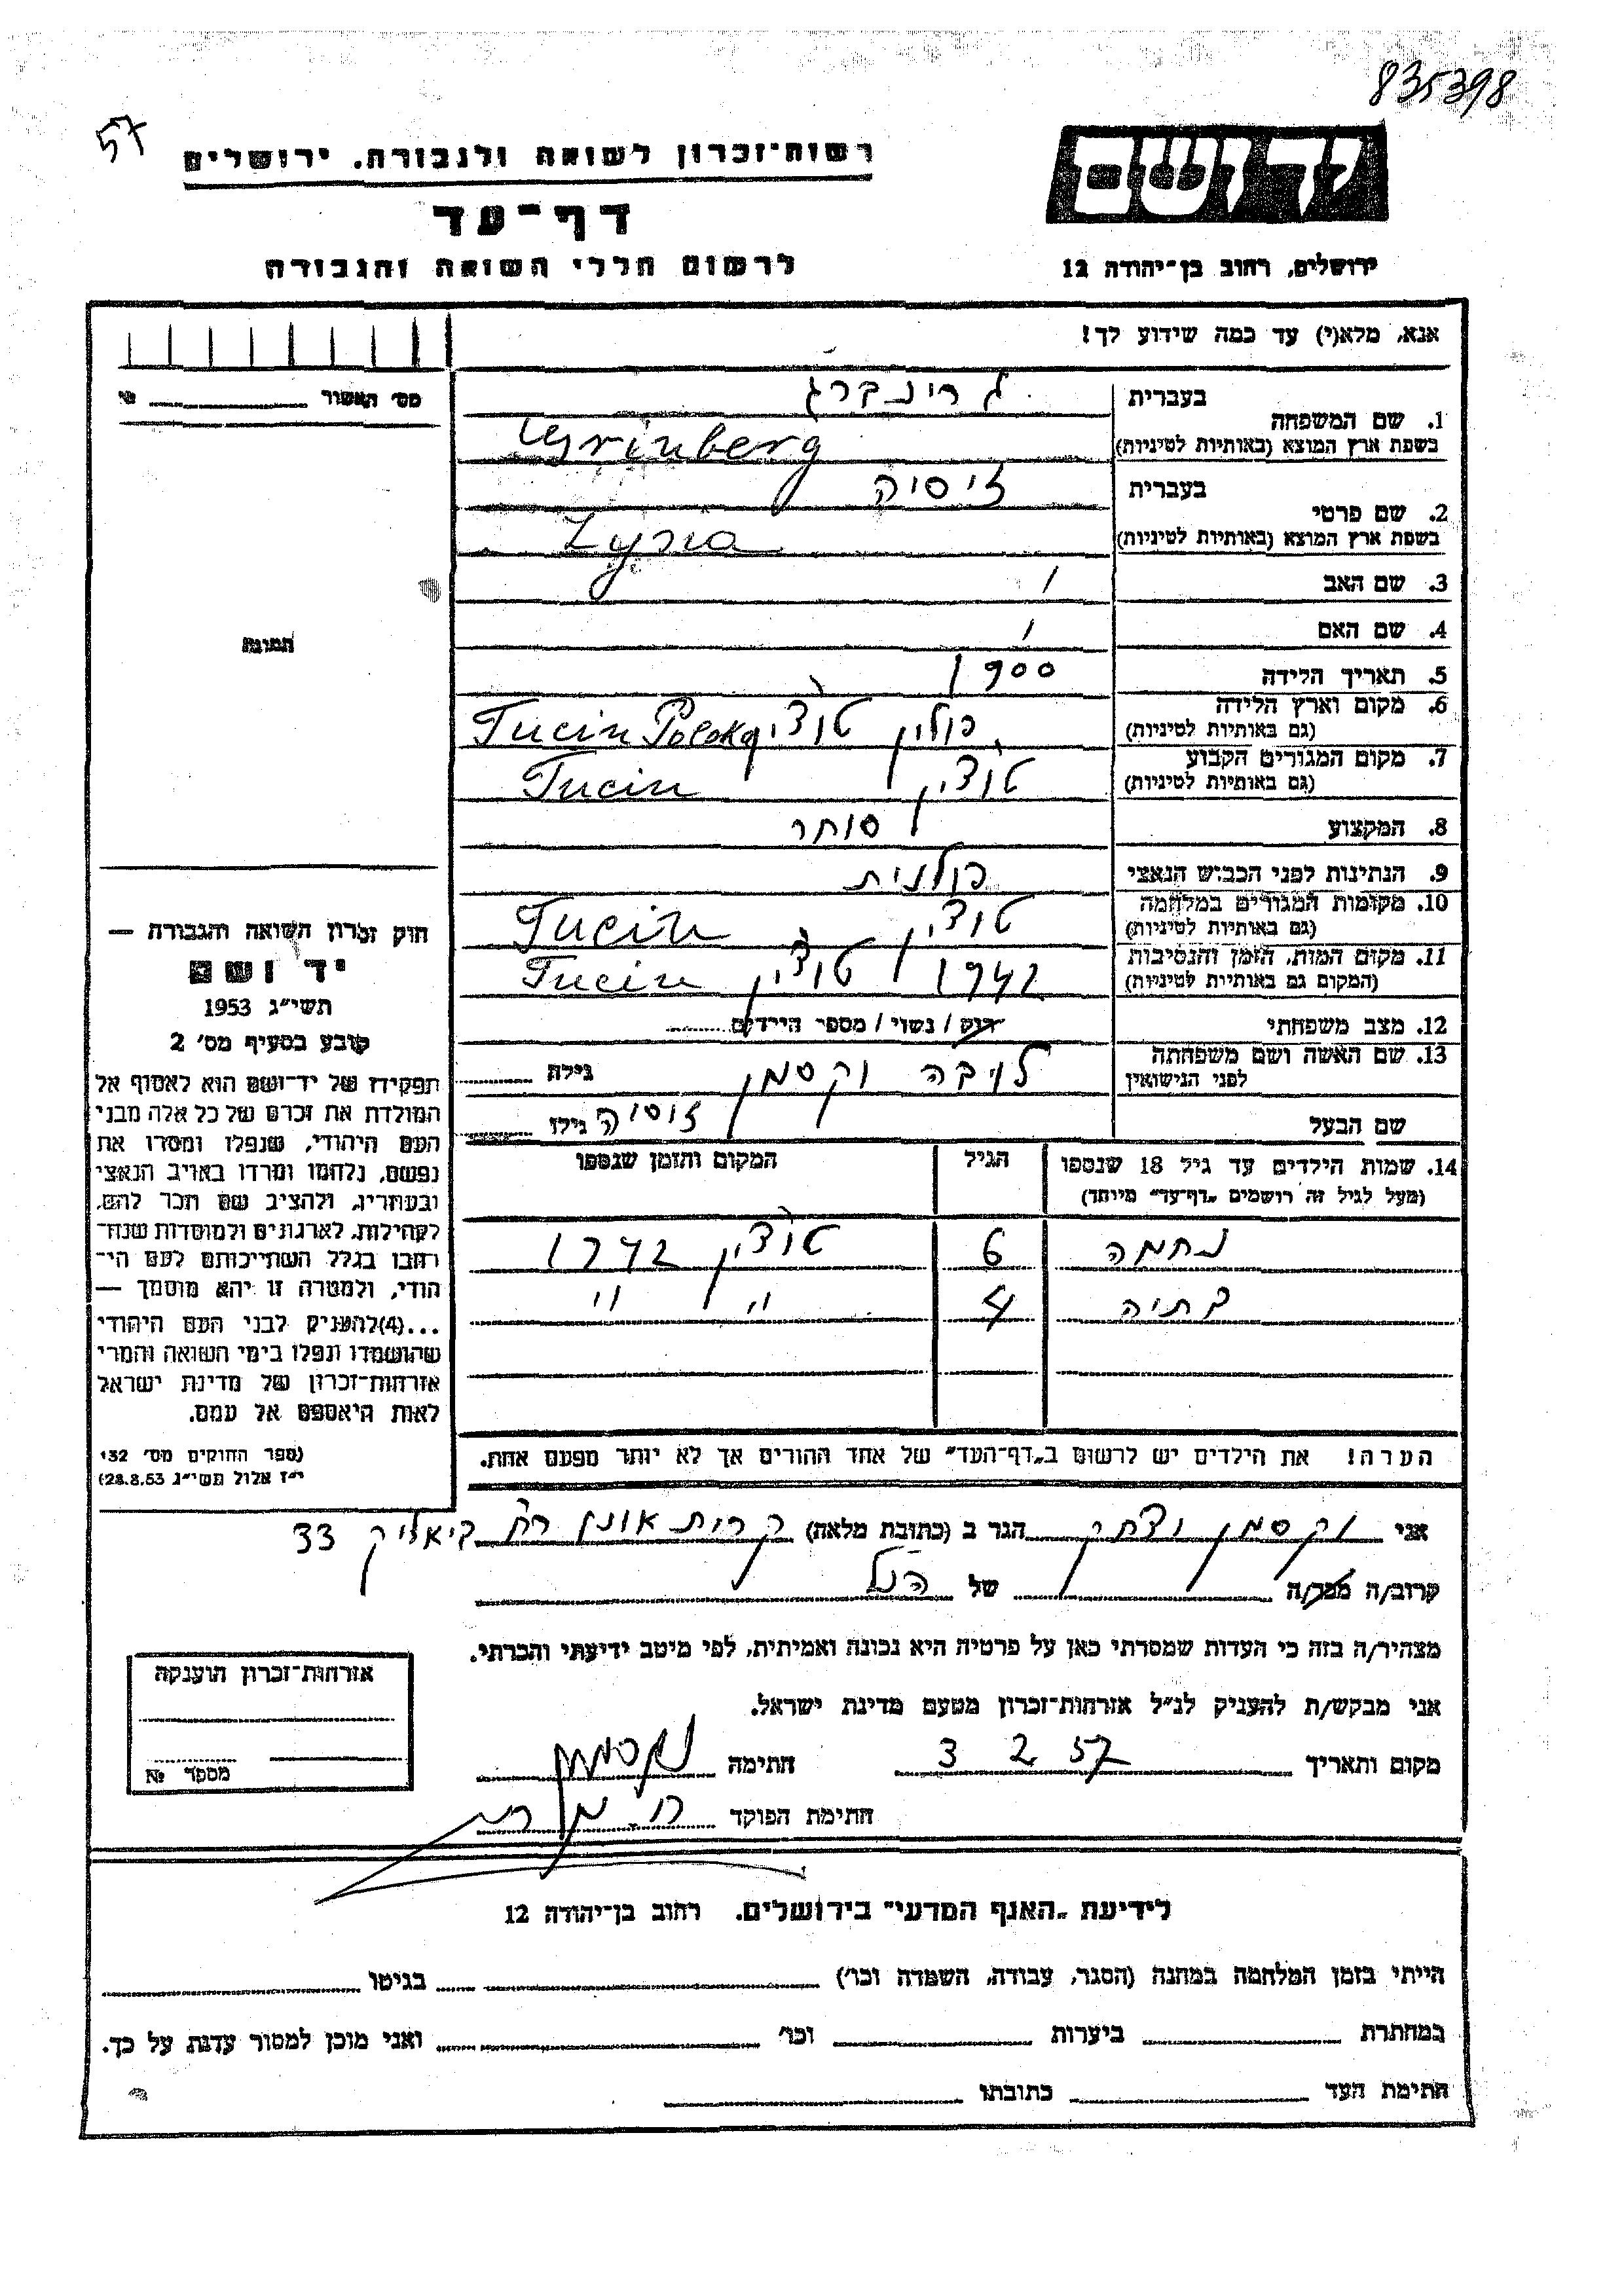 835398
57
רשות־זכרון לשואה ולגבורה. ירושלים
יד ושם
דף־עד
לרשום חללי השואה והגבורה
ירושלים, רחוב בן־יהודה 12
אנא, מלא(י) עד כמה שידוע לך!
מס' האשור
1. שם המשפחה
בעברית
גרינברג
בשפת ארץ המוצא (באותיות לטיניות)
Grinberg
2. שם פרטי
בעברית
זיסיה
בשפת ארץ המוצא (באותיות לטיניות)
Zysia
3. שם האב /
4. שם האם /
5. תאריך הלידה 1900
6. מקום וארץ הלידה
(גם באותיות לטיניות)
פולין טוצ'ין Tucin Polska
7. מקום המגורים הקבוע
(גם באותיות לטיניות)
טוצין Tucin
8. המקצוע סוחר
9. הנתינות לפני הכבוש הנאצי פולנית
10. מקומות המגורים במלחמה
(גם באותיות לטיניות)
טוצין Tucin
11. מקום המות, הזמן והנסיבות
(המקום גם באותיות לטיניות)
1942 טוצ'ין Tucin
12. מצב משפחתי רווק / נשוי / מספר הילדים
13. שם האשה ושם משפחתה
לפני הנישואין
לויבה וקסמן גילה
שם הבעל זוסיה גילו
14. שמות הילדים עד גיל 18 שנספו הגיל המקום והזמן שנספו
(מעל לגיל זה רושמים "דף־עד" מיוחד)
נחמה 6 טוצ'ין 1942
בתיה 4 " " "
הערה! את הילדים יש לרשום ב"דף־העד" של אחד ההורים אך לא יותר מפעם אחת.
תמונה
חוק זכרון השואה והגבורה —
יד ושם
תשי"ג 1953
קובע בסעיף מס' 2
תפקידו של יד־ושם הוא לאסוף אל
המולדת את זכרם של כל אלה מבני
העם היהודי, שנפלו ומסרו את
נפשם, נלחמו ומרדו באויב הנאצי
ובעוזריו, ולהציב שם וזכר להם,
לקהילות, לארגונים ולמוסדות שנח־
רבו בגלל השתייכותם לעם הי־
הודי, ולמטרה זו יהא מוסמך —
...(4)להעניק לבני העם היהודי
שהושמדו ונפלו בימי השואה והמרי
אזרחות־זכרון של מדינת ישראל
לאות היאספם אל עמם.
(ספר החוקים מס' 132
י"ז אלול תשי"ג 28.8.53)
אני וקסמן יצחק הגר ב (כתובת מלאה) קרית אונו רח' ביאליק 33
קרוב/ה מכר/ה של הנ"ל
מצהיר/ה בזה כי העדות שמסרתי כאן על פרטיה היא נכונה ואמיתית, לפי מיטב ידיעתי והכרתי.
אני מבקש/ת להעניק לנ"ל אזרחות־זכרון מטעם מדינת ישראל.
מקום ותאריך 3 2 57 חתימה וקסמן
חתימת הפוקד
אזרחות־זכרון הוענקה
מספר №
לידיעת "האגף המדעי" בירושלים. רחוב בן־יהודה 12
הייתי בזמן המלחמה במחנה (הסגר, עבודה, השמדה וכו') בגיטו
במחתרת ביערות וכו' ואני מוכן למסור עדות על כך.
חתימת העד כתובתו